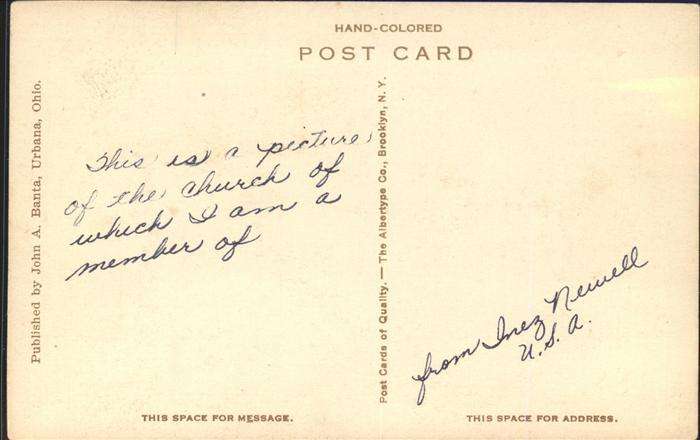 HAND-COLORED
POST CARD
Published by John A. Banta, Urbana, Ohio.
This is a picture
of the church of
which I am a
member of
Post Cards of Quality. — The Albertype Co., Brooklyn, N. Y.
from Inez Newell
U.S.A.
THIS SPACE FOR MESSAGE.
THIS SPACE FOR ADDRESS.